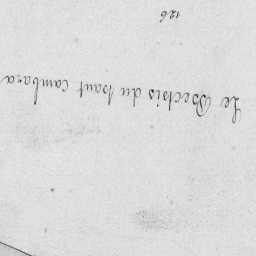 Le du haut Cambara
126